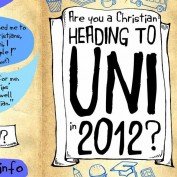 Are you a Christian
HEADING TO
UNI
in 2012?
ed me to
ristians,
ple!"
for men
ips
well
tian."
?
info